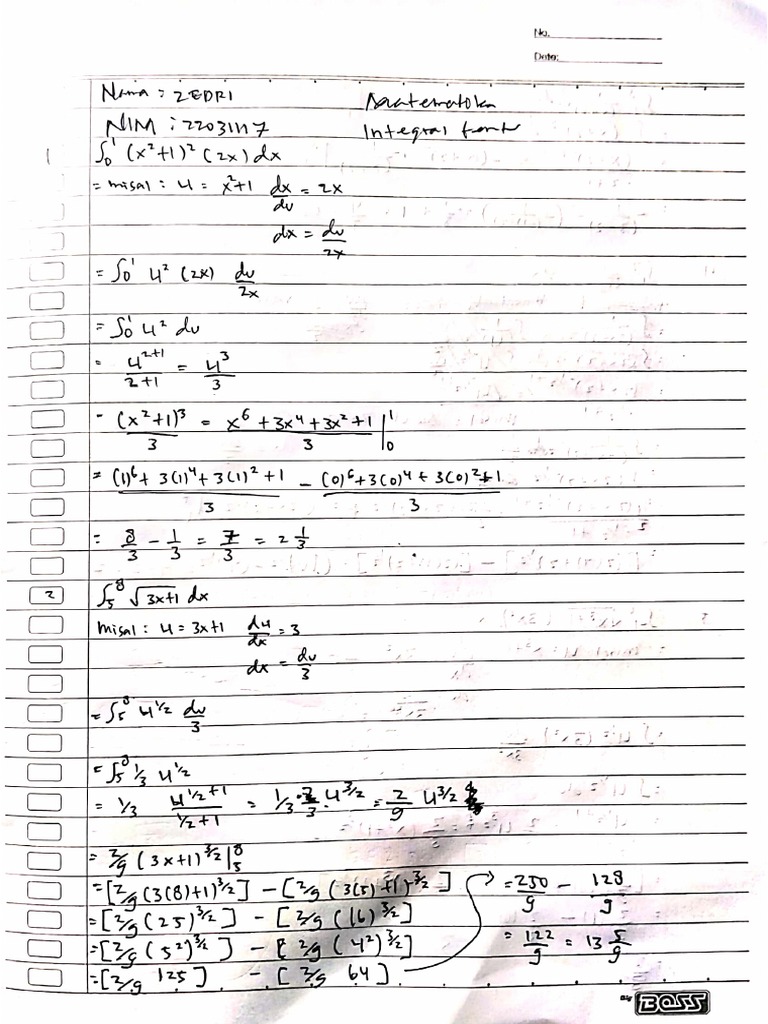 No.
Date:
Nama : ZEDRI
NIM : 22031117
Integral
1 ∫₀¹ (x²+1)² (2x) dx
= misal : u = x²+1 dx/du = 2x
dx = du/2x
= ∫₀¹ u² (2x) du/2x
= ∫₀¹ u² du
= u²⁺¹/2+1 = u³/3
= (x²+1)³/3 = x⁶ + 3x⁴ + 3x² + 1/3 |₀¹
= (1)⁶ + 3(1)⁴ + 3(1)² + 1/3 - (0)⁶ + 3(0)⁴ + 3(0)² + 1/3
= 8/3 - 1/3 = 7/3 = 2 1/3
2 ∫₅⁸ √3x+1 dx
misal : u = 3x+1 du/dx = 3
dx = du/3
= ∫₅⁸ u^1/2 du/3
= ∫₅⁸ 1/3 u^1/2
= 1/3 u^1/2+1/1/2+1 = 1/3 · 2/3 · u^3/2 = 2/9 u^3/2
= 2/9 (3x+1)^3/2 |₅⁸
= [2/9 (3(8)+1)^3/2] - [2/9 (3(5)+1)^3/2]
= [2/9 (25)^3/2] - [2/9 (16)^3/2]
= [2/9 (5²)^3/2] - [2/9 (4²)^3/2]
= [2/9 125] - [2/9 64]
= 250/9 - 128/9
= 122/9 = 13 5/9
By BOSS